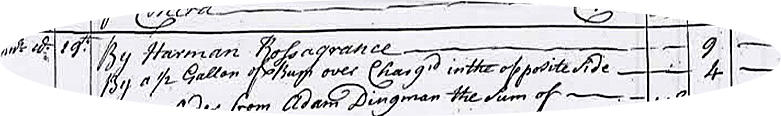 19th By Harman Rossagrance 9
By a ½ Gallon of Rum over Charg'd in the opposite side 4
from Adam Dingman the Sum of